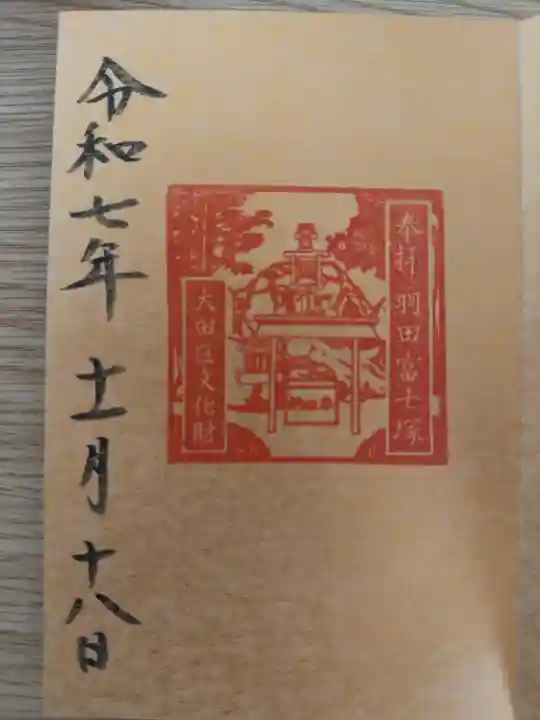 奉拝 羽田富士塚
大田区文化財
令和七年 十一月 十八日